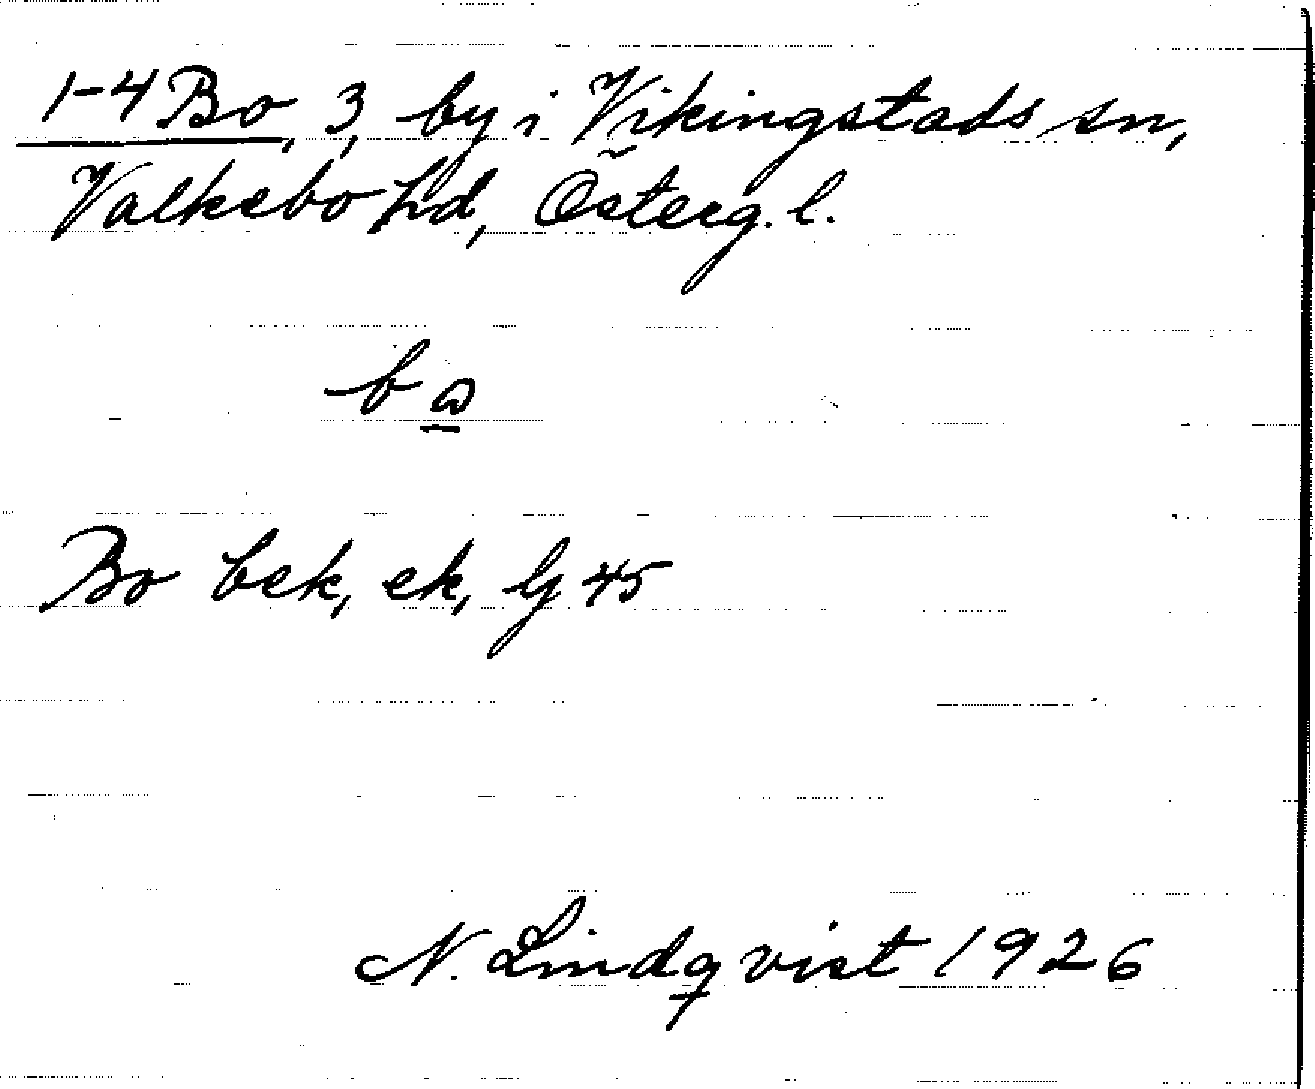 1-4 Bo, 3, by i Vikingstads sn,
Valkebo hd, Österg. l.
Bo bek, ek, G 45
N. Lindqvist 1926